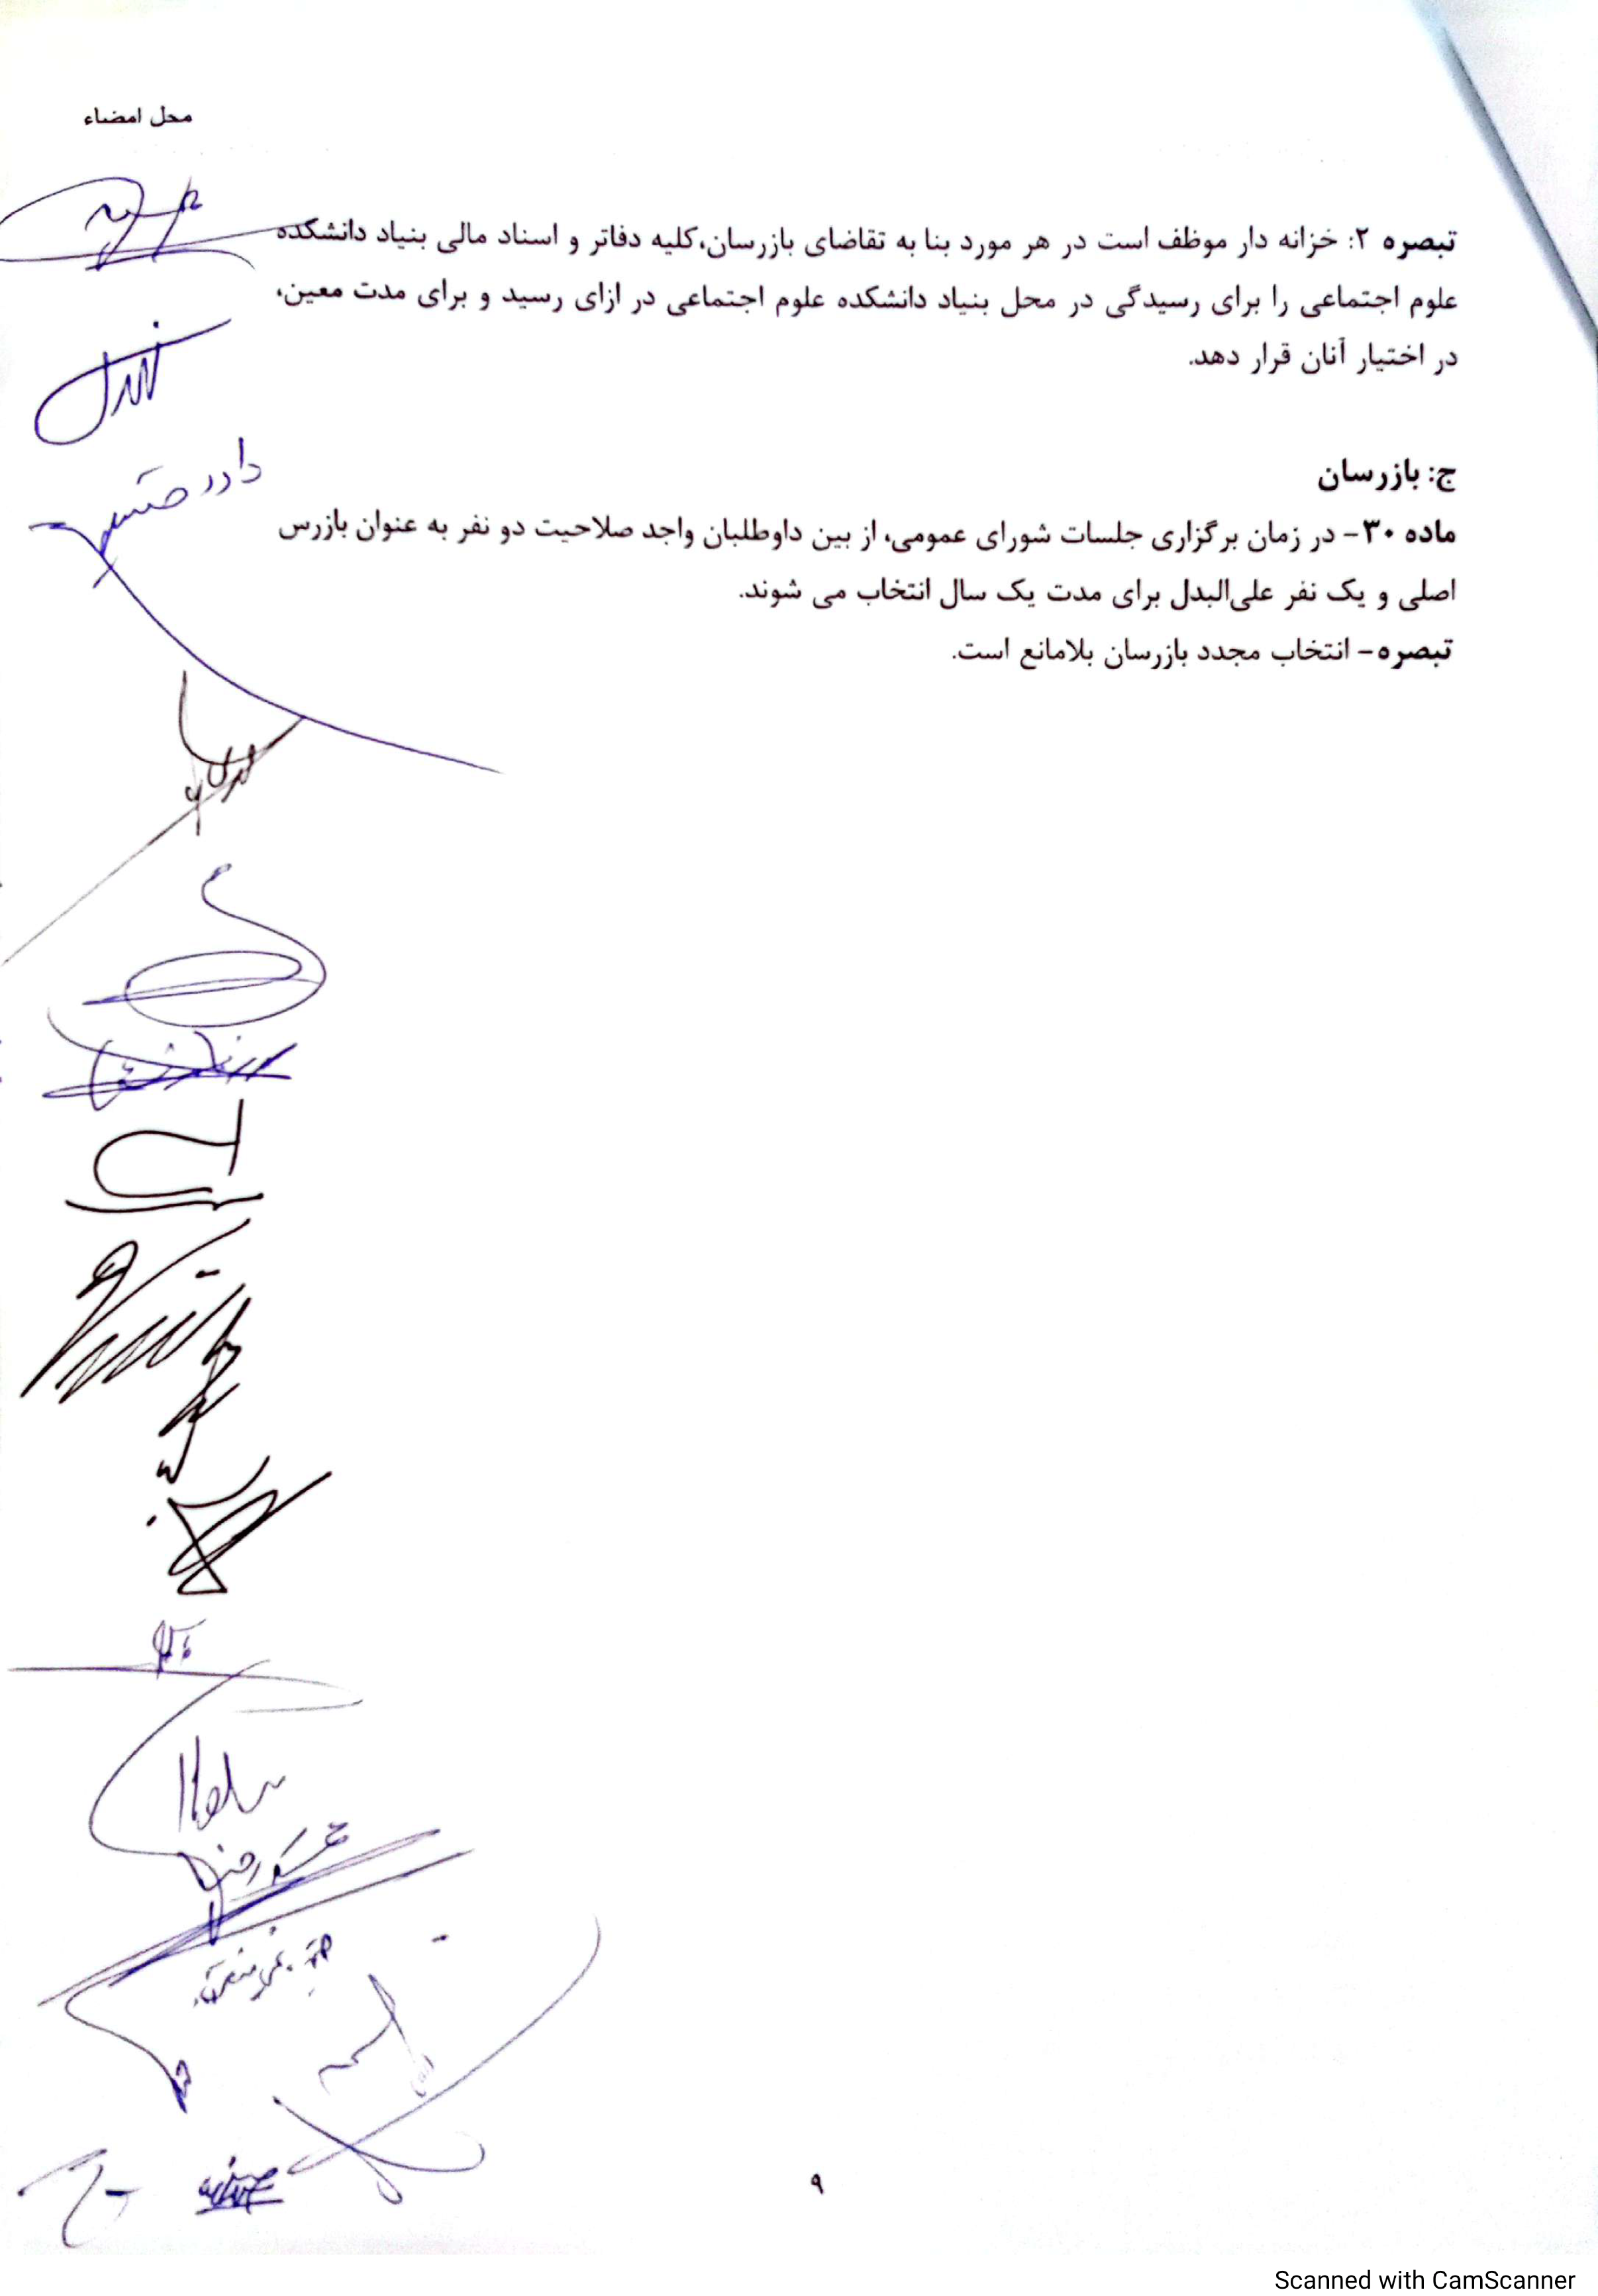 محل امضاء
تبصره ۲: خزانه دار موظف است در هر مورد بنا به تقاضای بازرسان،کلیه دفاتر و اسناد مالی بنیاد دانشکده
علوم اجتماعی را برای رسیدگی در محل بنیاد دانشکده علوم اجتماعی در ازای رسید و برای مدت معین،
در اختیار آنان قرار دهد.
ج: بازرسان
ماده ۳۰- در زمان برگزاری جلسات شورای عمومی، از بین داوطلبان واجد صلاحیت دو نفر به عنوان بازرس
اصلی و یک نفر علی‌البدل برای مدت یک سال انتخاب می شوند.
تبصره- انتخاب مجدد بازرسان بلامانع است.
۹
Scanned with CamScanner